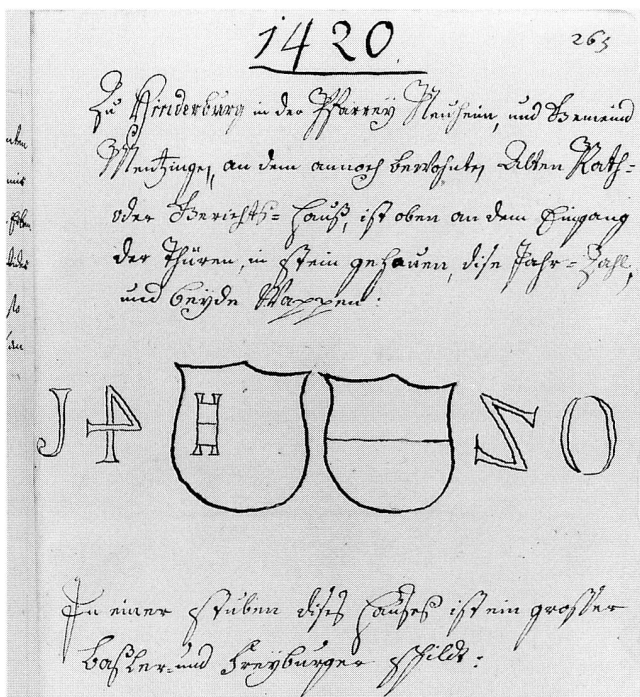 1420. 263
Zu Hinderburg in der Pfarrey Neuheim, und Gemeind
Mentzingen, an dem annoch bewohnten Alten Rath=
oder Gerichts=Hauß, ist oben an dem Eingang
der Thüren, in stein gehauen, dise Jahr=Zahl,
und beyde Wappen:
J4 Z0
In einer stuben dises Hauses ist ein grosser
Baßler= und Freyburger schildt: